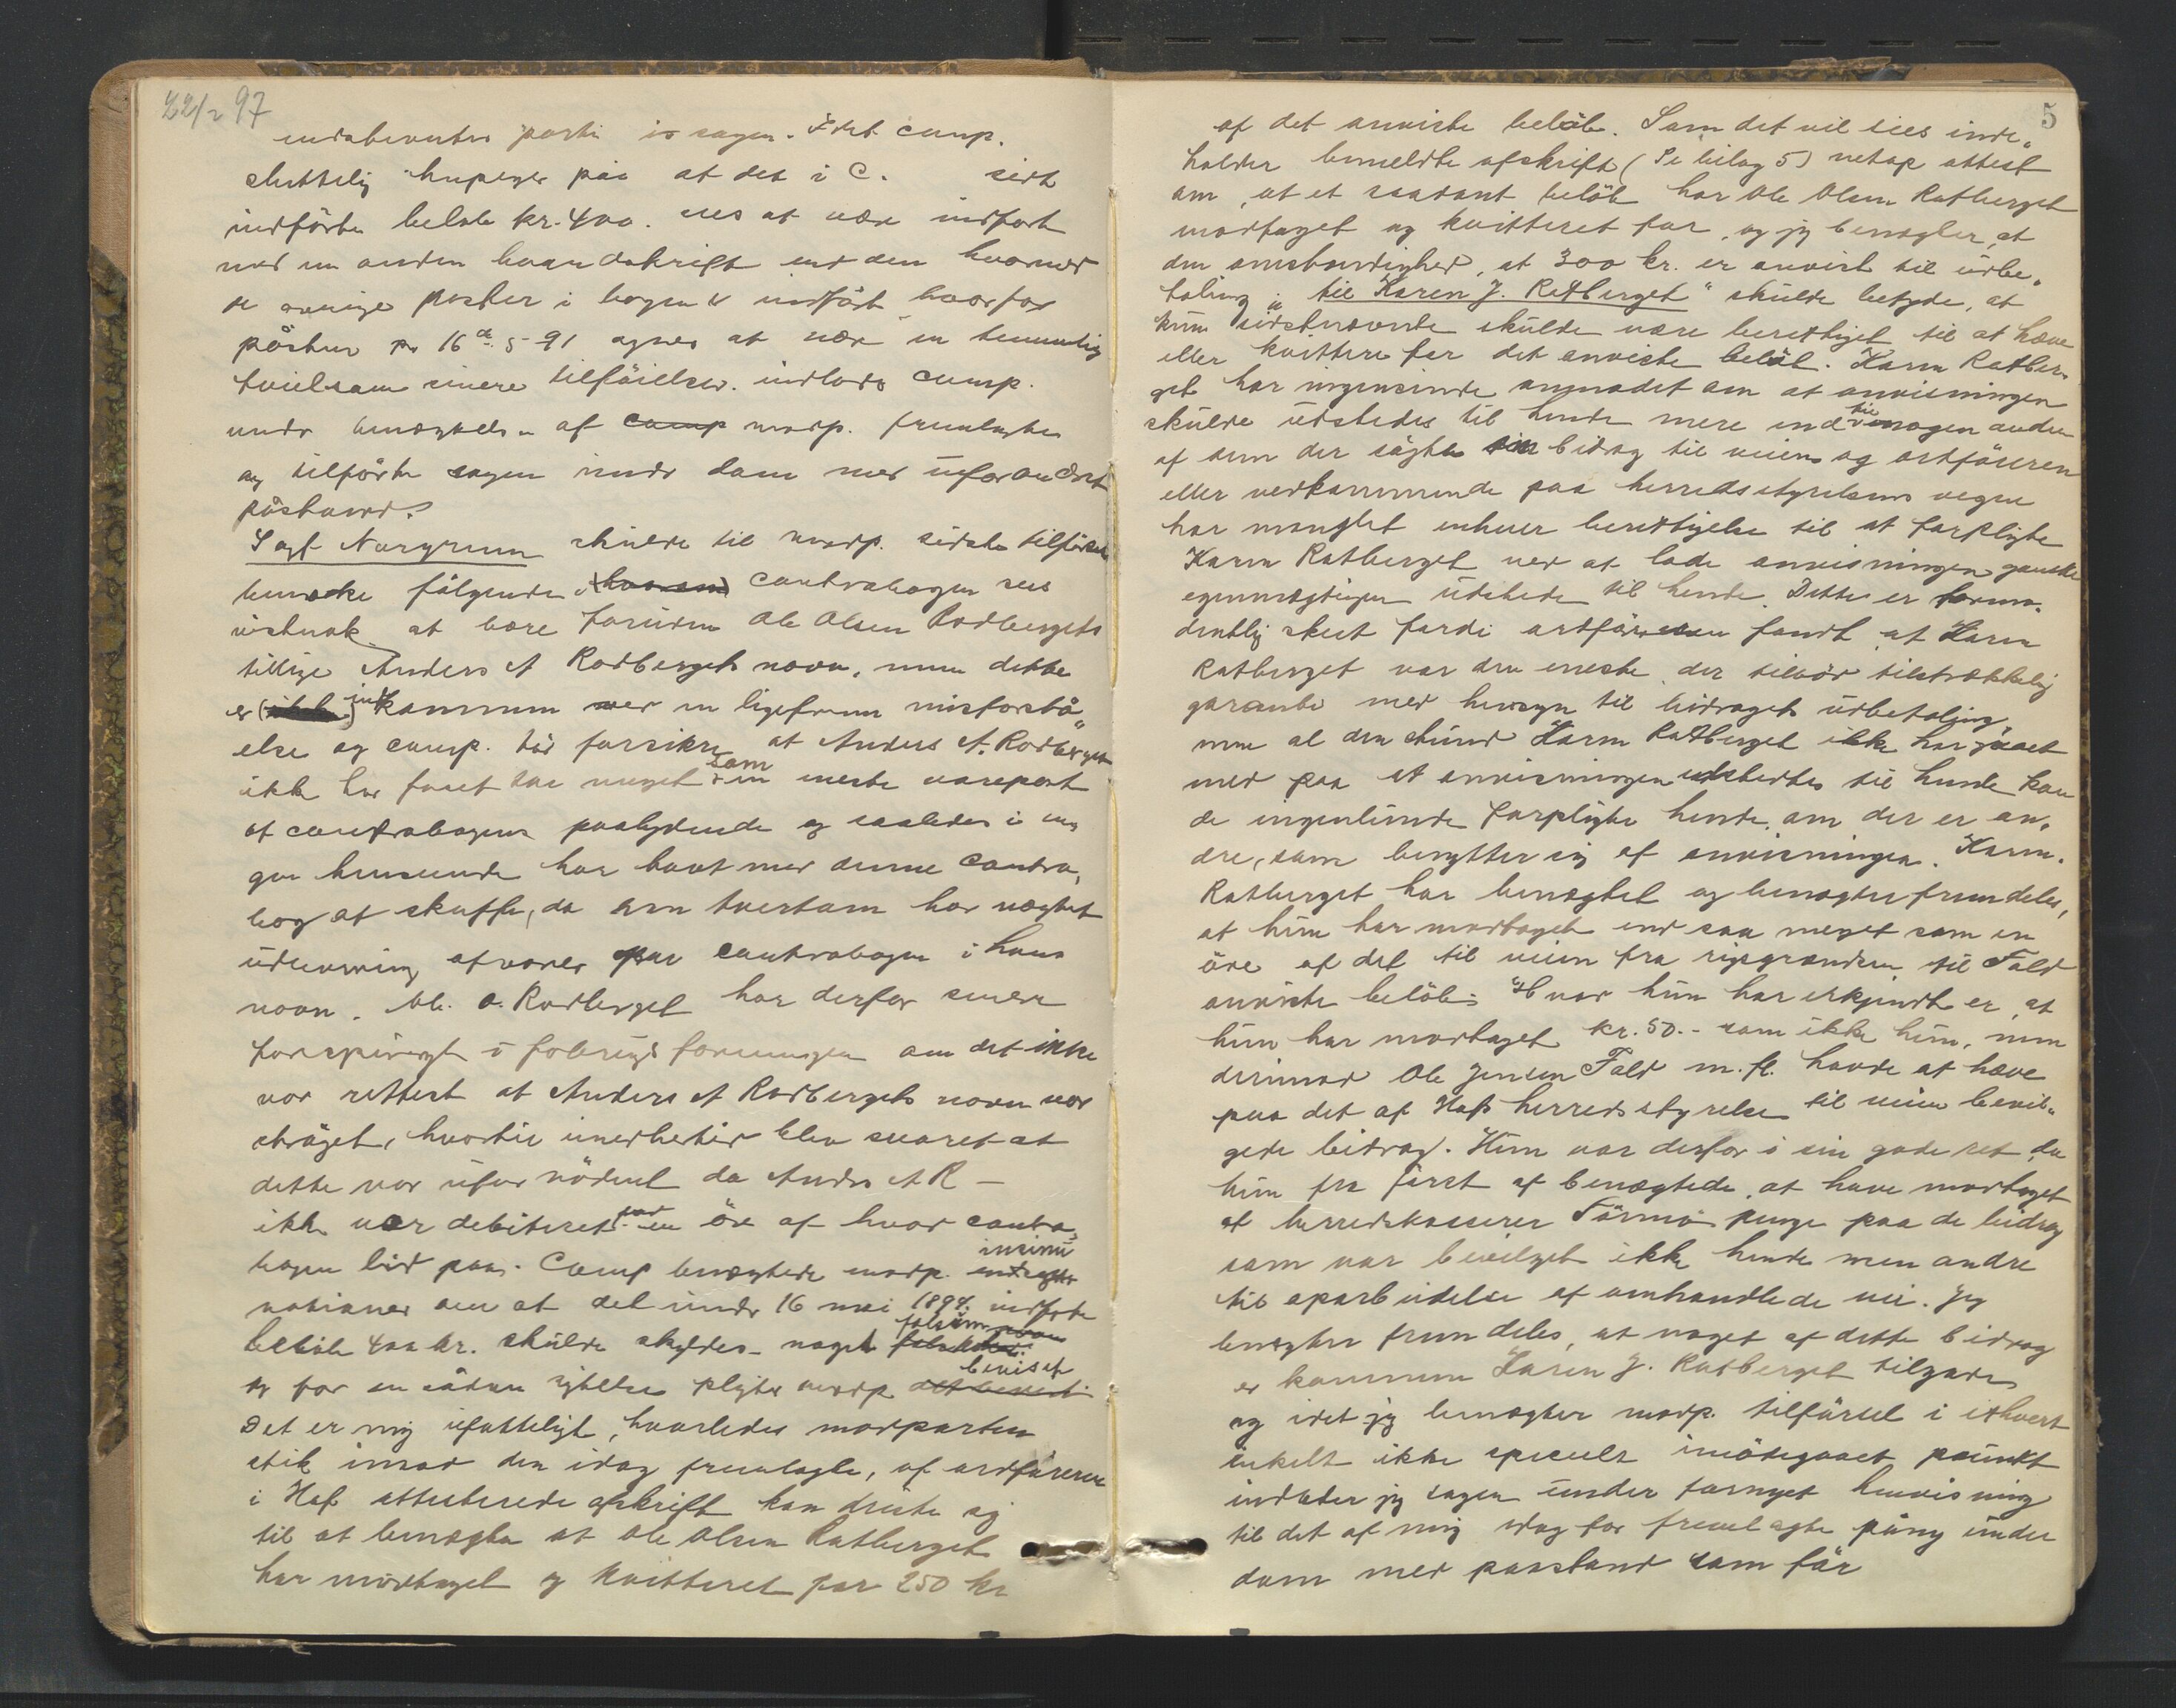 22/2 97
endabenutes parti i sagen. Idet comp.
sluttelig henpeger paa at det i C. sidst
indförte belöb kr. 400. sees at være indfört
med en anden haandskrift end den hvormed
de övrige poster i bogen er indfört hvorfor
pösten pr 16de 5-91 agnes at være en temmelig
tvielsom senere tilföielse. indlod comp.
under benægtelse af comp modp. fremlagte
og tilförte sagen under dom med uforandret
påstand.
Sagf. Norgrenn skulde til modp. sidste tilförsel
bemerke fölgende: (hvorom) contrabogen sees
vistnok at bære foruden Ole Olsen Rodbergets
tillige Anders A Rodbergets navn, men dette
er (ikke) indkommen ved en ligefrem misforstå„
else og comp. tör forsikre at Anders A. Rodberget
ikke har faaet saa meget som en eneste varepost
af contrabogens paalydende og saaledes i in„
gen henseende har havt med denne contra„
bog at skaffe, da han tvertom har nægtet
udlevering af varer paa contrabogen i hans
navn. Ole O. Rodberget har derfor senere
forespurgt i fobrugsforeningen om det ikke
var rettest at Anders A Rodbergets navn var
ströget, hvortil imidlertid blev svaret at
dette var ufornödent da Anders A R –
ikke var debiteret for en öre af hvad contra„
bogen löd paa. Comp benægtede modp. indsagte insinu
nationer om at det under 16 mai 1897. indförte
belöb 400 kr. skulde skyldes noget falskneri falsum
og for en sådan sigtelse pligter modp. det bevist beviset
Det er mig ufatteligt, hvorledes modparten
stik imod den idag fremlagte, af ordföreren
i Hof attesterede afskrift kan driste sig
til at benægte at Ole Olsen Ratberget
har modtaget og kvitteret for 250 kr
5
af det anviste belöb. Som det vil sees inde„
holder bemeldte afskrift (Se bilag 5) netop attest
om, at et saadant belöb har Ole Olsen Ratberget
modtaget og kvitteret for, og jeg benægter, at
den omstændighed, at 300 kr. er anvist til udbe„
taling „til Karen J. Ratberget“ skulde betyde, at
kun sidstnævnte skulde være berettiget til at hæve
eller kvittere for det anviste belöb. Karen Ratber„
get har ingensinde anmodet om at anvisningen
skulde udstedes til hende mere end til nogen anden
af dem der sögte om bidrag til veien og ordföreren
eller vedkommende paa herredsstyrelsens vegne
har manglet enhver berettigelse til at forpligte
Karen Ratberget ved at lade anvisningen ganske
egenmægtigen udstede til hende. Dette er formo„
dentlig skeet fordi ordföreren fandt at Karen
Ratberget var den eneste, der tilböd tilstrækkelig
garanti med hensyn til bidragets udbetaling,
men al den stund Karen Ratberget ikke har gaaet
med paa at anvisningen udstedtes til hende kan
de ingenlunde forpligte hende, om der er an„
dre, som benytter sig af anvisningen. Karen
Ratberget har benægtet og benægter fremdeles,
at hun har modtaget end saa meget som en
öre af det til veien fra rigsgrændsen til Fald
anviste belöb. Hvad hun har erkjendt er, at
hun har modtaget kr. 50.- som ikke hun, men
derimod Ole Jensen Fald m.fl. havde at hæve
paa det af Hofs herredsstyrelse til veien bevil„
gede bidrag. Hun var derfor i sin gode ret, da
hun fra först af benægtede, at have modtaget
af herredskasserer Sörmo penge paa de bidrag
som var bevilget ikke hende men andre
til oparbeidelse af omhandlede vei. Jeg
benægter fremdeles, at noget af dette bidrag
er kommen Karen J. Ratberget tilgode
og idet jeg benægter modp. tilförsel i ethvert
enkelt ikke specielt imödegaaet punkt
indlader jeg sagen under fornyet henvisning
til det af mig idag for fremlagte påny under
dom med paastand som för